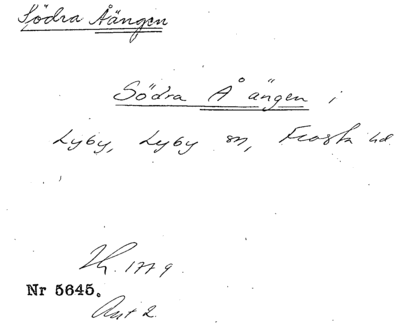 Södra Åängen
Södra Å ängen i
Lyby, Lyby sn, Frosta hd
1779.
Nr 5645.
Akt 2